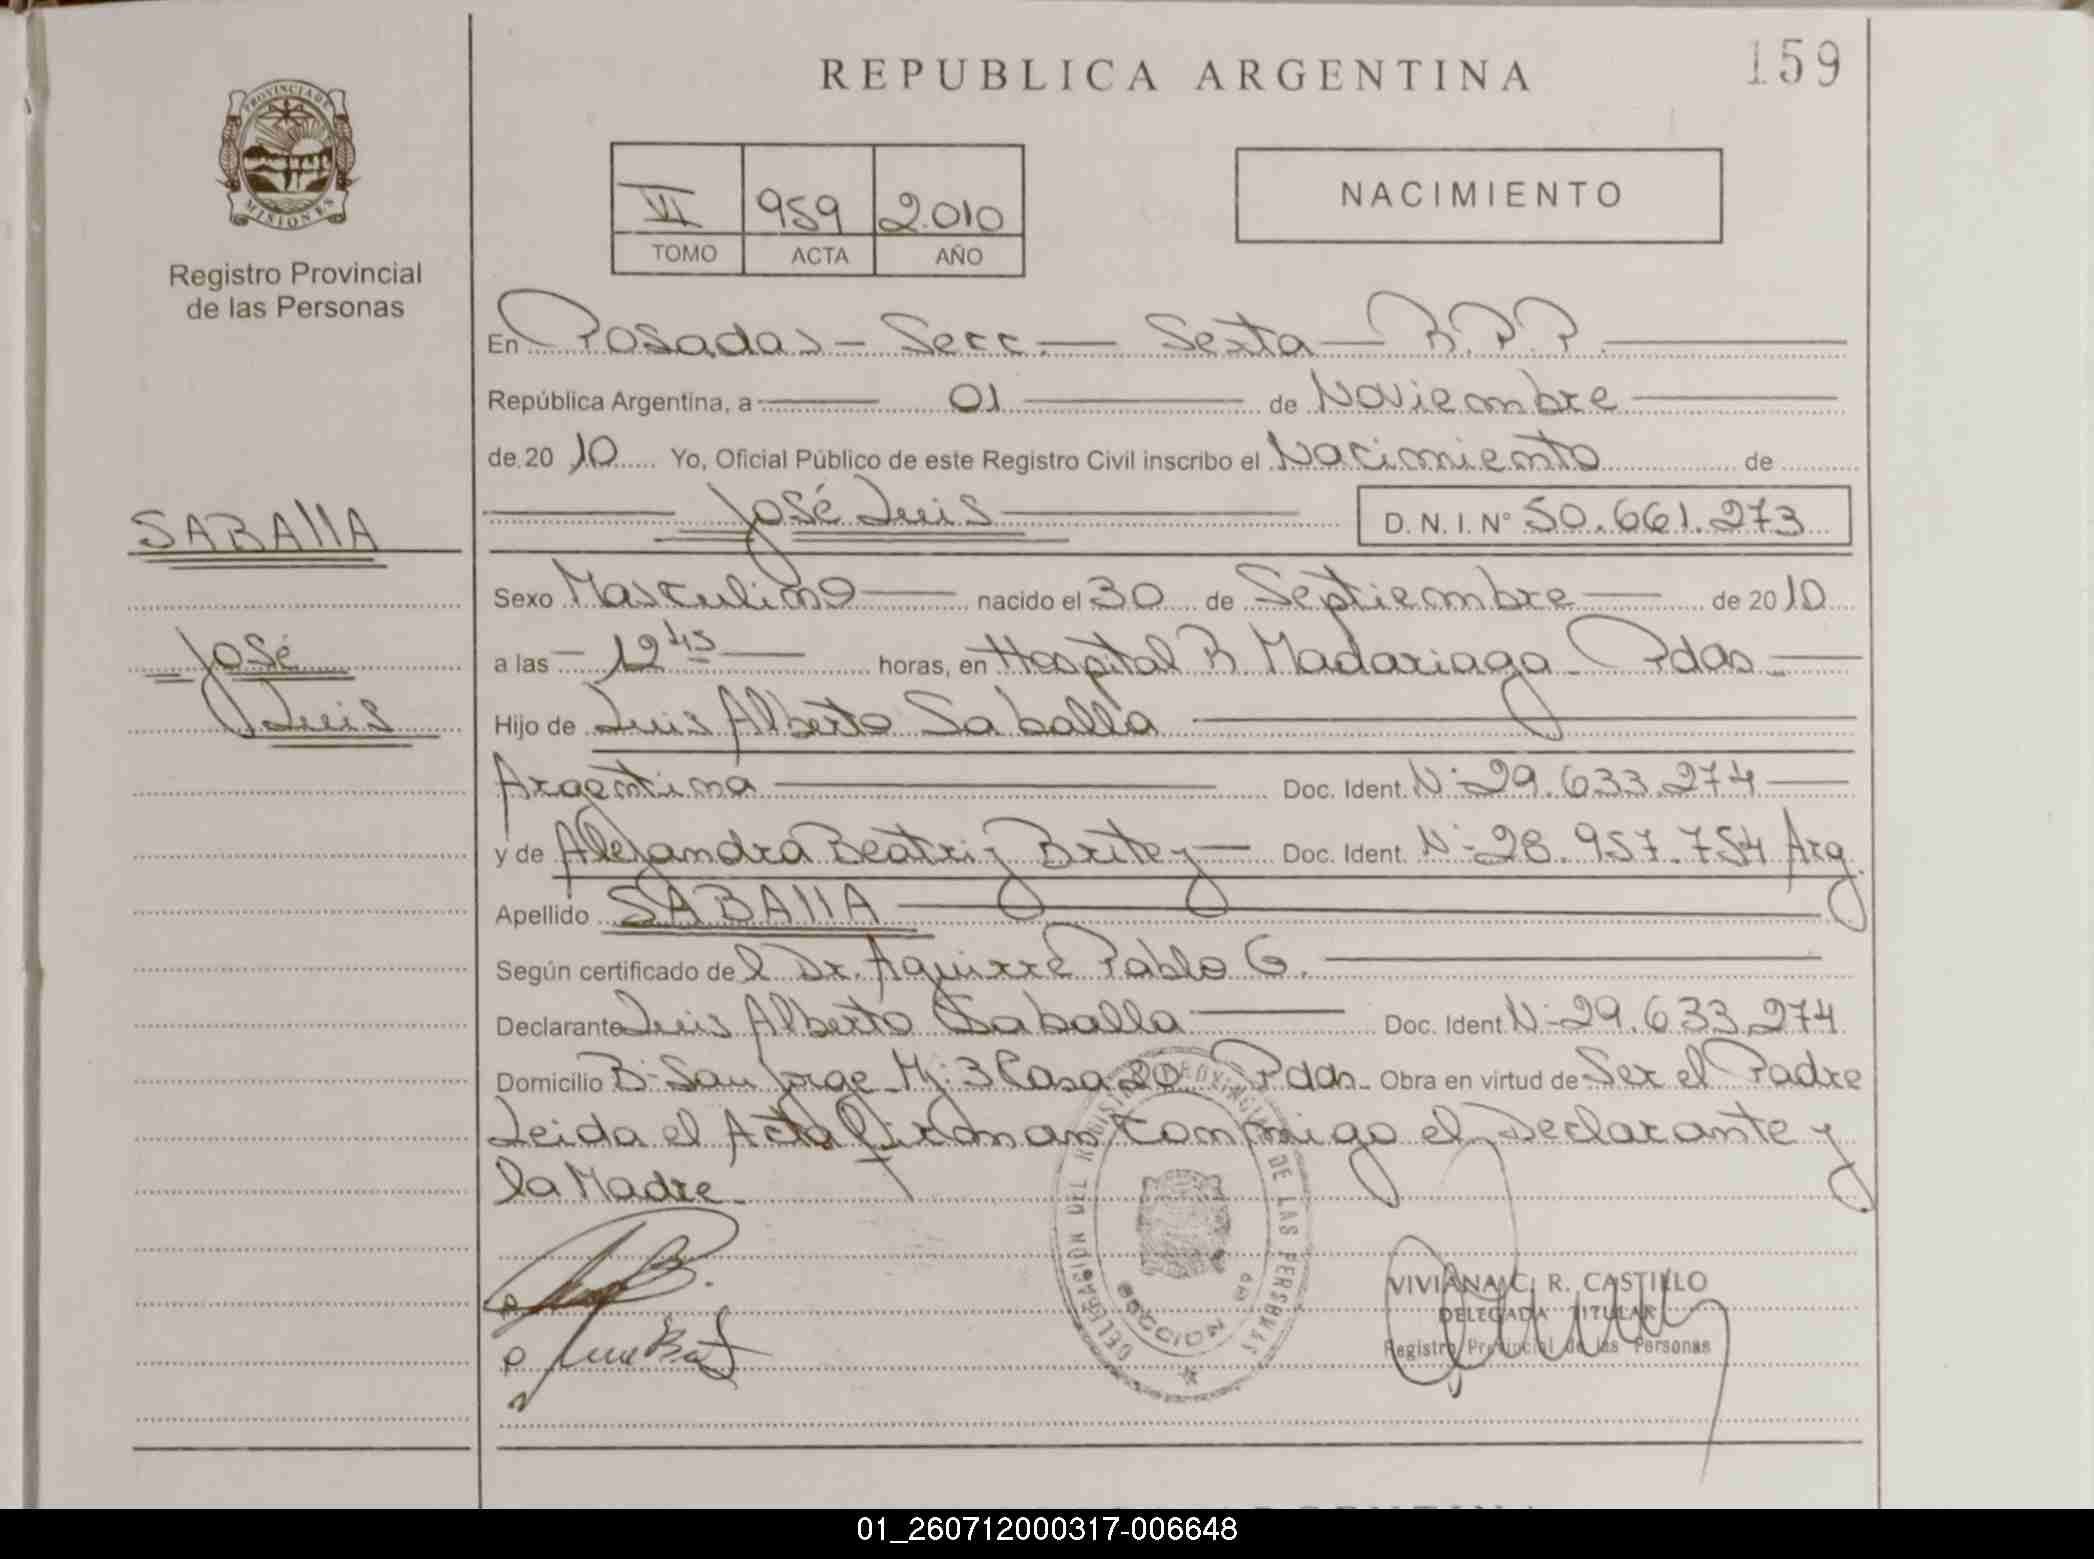 REPUBLICA ARGENTINA
159
PROVINCIA DE
MISIONES
Registro Provincial
de las Personas
VI 959 2.010
TOMO ACTA AÑO
NACIMIENTO
En Posadas - Secc. - Sexta - R.P.P.
República Argentina, a 01 de Noviembre
de 20 10 Yo, Oficial Público de este Registro Civil inscribo el Nacimiento de
José Luis D. N. I. N° 50.661.273
SABAllA
José
Luis
Sexo Masculino nacido el 30 de Septiembre de 20 10
a las 12 45 horas, en Hospital R. Madariaga - Pdas
Hijo de Luis Alberto Saballa
Argentina Doc. Ident. N° 29.633.274
y de Alejandra Beatriz Britez Doc. Ident. N° 28.957.754 Arg.
Apellido SABAllA
Según certificado de l Dr. Aguirre Pablo G.
Declarante Luis Alberto Saballa Doc. Ident N° 29.633.274
Domicilio B° San Jorge - Mz: 3 Casa 20 Pdas - Obra en virtud de Ser el Padre
Leida el Acta firman conmigo el Declarante y
la Madre -
DELEGACIÓN DEL REGISTRO PROVINCIAL DE LAS PERSONAS
SECCION 6ª
VIVIANA C. R. CASTILLO
DELEGADA TITULAR
Registro Provincial de las Personas
01_260712000317-006648